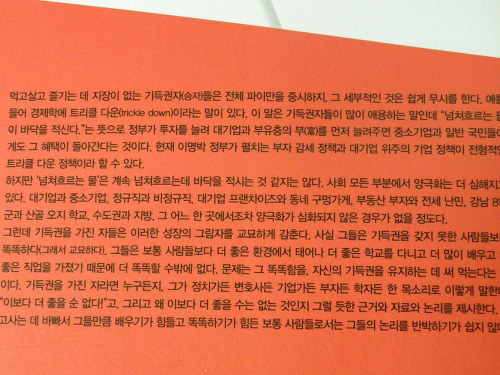 먹고살고 즐기는 데 지장이 없는 기득권자(승자)들은 전체 파이만을 중시하지, 그 세부적인 것은 쉽게 무시를 한다. 예를
들어 경제학에 트리클 다운(trickle down)이라는 말이 있다. 이 말은 기득권자들이 많이 애용하는 말인데 “넘쳐흐르는 물
이 바닥을 적신다.”는 뜻으로 정부가 투자를 늘려 대기업과 부유층의 부(富)를 먼저 늘려주면 중소기업과 일반 국민들에
게도 그 혜택이 돌아간다는 것이다. 현재 이명박 정부가 펼치는 부자 감세 정책과 대기업 위주의 기업 정책이 전형적인
트리클 다운 정책이라 할 수 있다.
하지만 ‘넘쳐흐르는 물’은 계속 넘쳐흐르는데 바닥을 적시는 것 같지는 않다. 사회 모든 부분에서 양극화는 더 심해지
있다. 대기업과 중소기업, 정규직과 비정규직, 대기업 프랜차이즈와 동네 구멍가게, 부동산 부자와 전세 난민, 강남 8학
군과 산골 오지 학교, 수도권과 지방, 그 어느 한 곳에서조차 양극화가 심화되지 않은 경우가 없을 정도다.
그런데 기득권을 가진 자들은 이러한 성장의 그림자를 교묘하게 감춘다. 사실 그들은 기득권을 갖지 못한 사람들보다
똑똑하다(그래서 교묘하다). 그들은 보통 사람들보다 더 좋은 환경에서 태어나 더 좋은 학교를 다니고 더 많이 배우고
좋은 직업을 가졌기 때문에 더 똑똑할 수밖에 없다. 문제는 그 똑똑함을, 자신의 기득권을 유지하는 데 써 먹는다는
이다. 기득권을 가진 자라면 누구든지, 그가 정치가든 변호사든 기업가든 부자든 학자든 한 목소리로 이렇게 말한다.
“이보다 더 좋을 순 없다!”고. 그리고 왜 이보다 더 좋을 수는 없는 것인지 그럴 듯한 근거와 자료와 논리를 제시한다.
고사는 데 바빠서 그들만큼 배우기가 힘들고 똑똑하기가 힘든 보통 사람들로서는 그들의 논리를 반박하기가 쉽지 않다